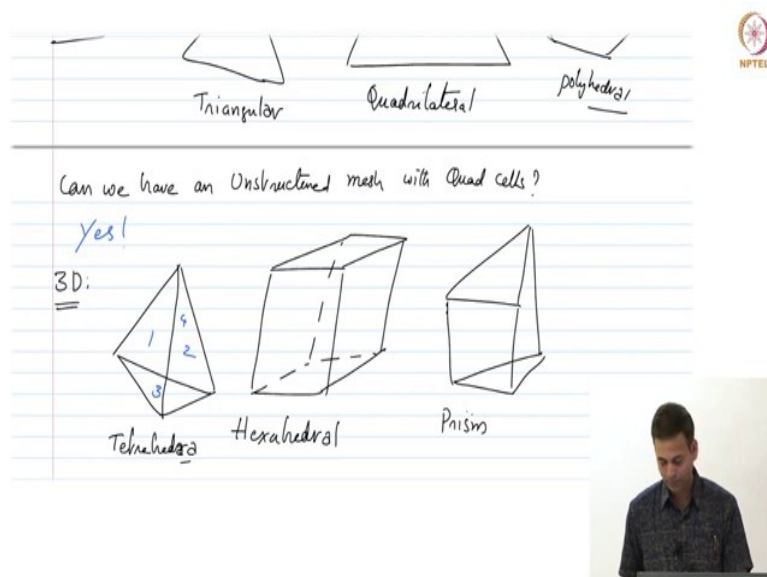 NPTEL
Triangular
Quadrilateral
polyhedral
Can we have an Unstructured mesh with Quad cells?
Yes!
3D:
1
4
2
3
Tetrahedra
Hexahedral
Prism